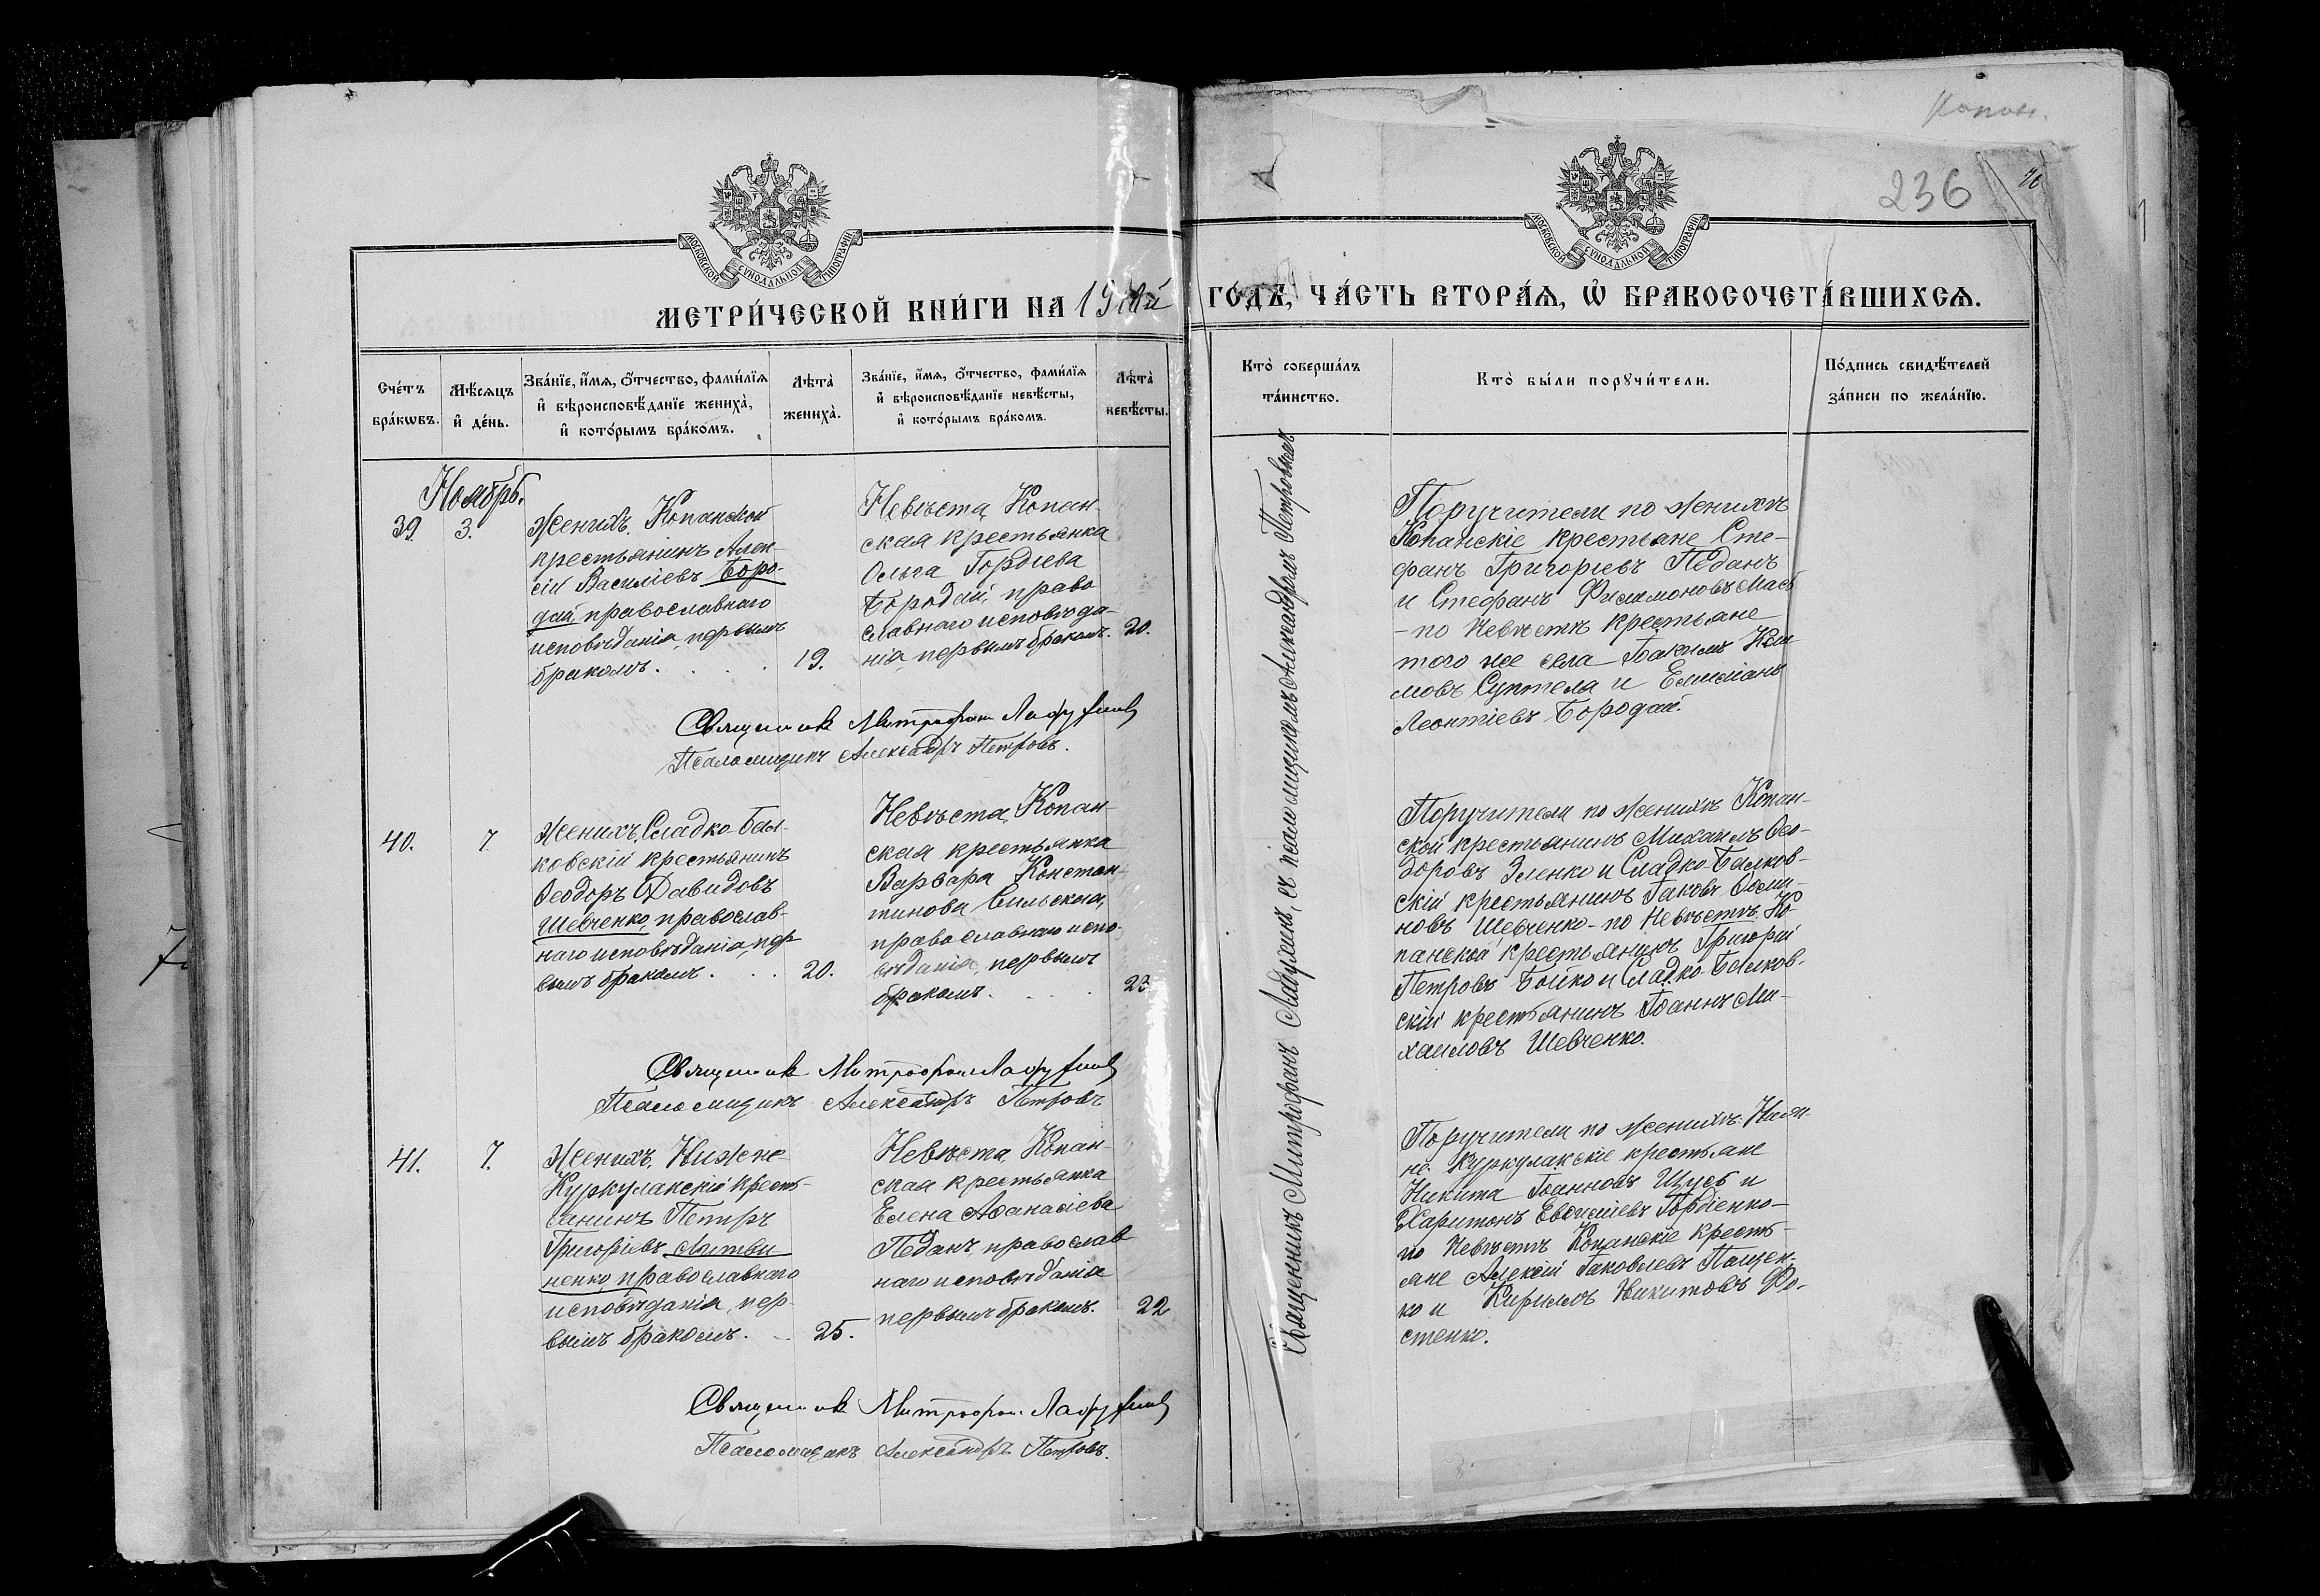 Копан.
236
76
МОСКОВСКОЙ СѴНОДАЛЬНОЙ ТИПОГРАФІИ
МОСКОВСКОЙ СѴНОДАЛЬНОЙ ТИПОГРАФІИ
МЕТРИ́ЧЕСКОЙ КНИ́ГИ НА 19
ГО́ДЪ, ЧА́СТЬ ВТОРА́Ѧ, Ѽ БРАКОСОЧЕТА́ВШИХСѦ.
Сче́тъ
бра́кѡвъ.
Мѣ́сѧцъ
и҆ де́нь.
Зва́нїе, и҆́мѧ, ѻ҆́тчество, фами́лїѧ
и҆ вѣроисповѣ́данїе жениха̀,
и҆ кото́рымъ бра́комъ.
Лѣта̀
жениха̀.
Зва́нїе, и҆́мѧ, ѻ҆́тчество, фами́лїѧ
и҆ вѣроисповѣ́данїе невѣ́сты,
и҆ кото́рымъ бра́комъ.
Лѣта̀
невѣ́сты.
Кто̀ соверша́лъ
та́инство.
Кто̀ бы́ли порꙋчи́тели.
По́дпись свидѣ́телей
за́писи по жела́нїю.
Ноябрь.
39.
3.
Женихъ, Копанской
крестьянинъ Алек-
сій Василіевъ Боро-
дай, православнаго
исповѣданія, первымъ
бракомъ.
19.
Невѣста, Копан-
ская крестьянка
Ольга Гордіева
Бородай, право
славнаго исповѣда-
нія, первымъ бракомъ.
20.
Поручители по женихѣ
Копанскіе крестьяне Сте-
фанъ Григорьевъ Педанъ
и Стефанъ Филимоновъ
- по невѣстѣ крестьяне
того же села Іоакимъ Кли
мовъ Суптеля и Емиліанъ
Леонтіевъ Бородай.
Священникъ Митрофанъ
Псаломщикъ Александръ Петровъ.
Священникъ Митрофанъ съ псаломщикомъ Александромъ Петровымъ
40.
7.
Женихъ, Сладко-Бал-
ковскій крестьянинъ
Ѳеодоръ Давидовъ
Шевченко, православ-
наго исповѣданія, пер
вымъ бракомъ.
20.
Невѣста, Копан-
ская крестьянка
Варвара Констан-
тинова Сильская,
православнаго испо-
вѣданія, первымъ
бракомъ.
23
Поручители по женихѣ Копан-
ской крестьянинъ Михаилъ Ѳео-
доровъ Зленко и Сладко-Балков-
скій крестьянинъ Іаковъ
новъ Шевченко - по невѣстѣ Ко-
панской крестьянинъ Григорій
Петровъ Бойко и Сладко-Балков-
скій крестьянинъ Іоаннъ Ми-
хаиловъ Шевченко.
Священникъ Митрофанъ
Псаломщикъ Александръ Петровъ
41.
7.
Женихъ, Нижне-
Куркулакскій кресть-
янинъ Петръ
Григоріевъ Литви
ненко, православнаго
исповѣданія, пер-
вымъ бракомъ.
25.
Невѣста, Копан-
ская крестьянка
Елена Аѳанасіева
Педанъ, православ
наго исповѣданія
первымъ бракомъ.
22
Поручители по женихѣ Ниж-
не-Куркулакскіе крестьяне
Никита Іоанновъ Щусь и
Харитонъ Евсигніевъ Гордіенко -
по невѣстѣ Копанскіе кресть-
яне Алексій Іаковлевъ Пащен-
ко и Кириллъ Никитовъ Фо-
стенко.
Священникъ Митрофанъ
Псаломщикъ Александръ Петровъ.